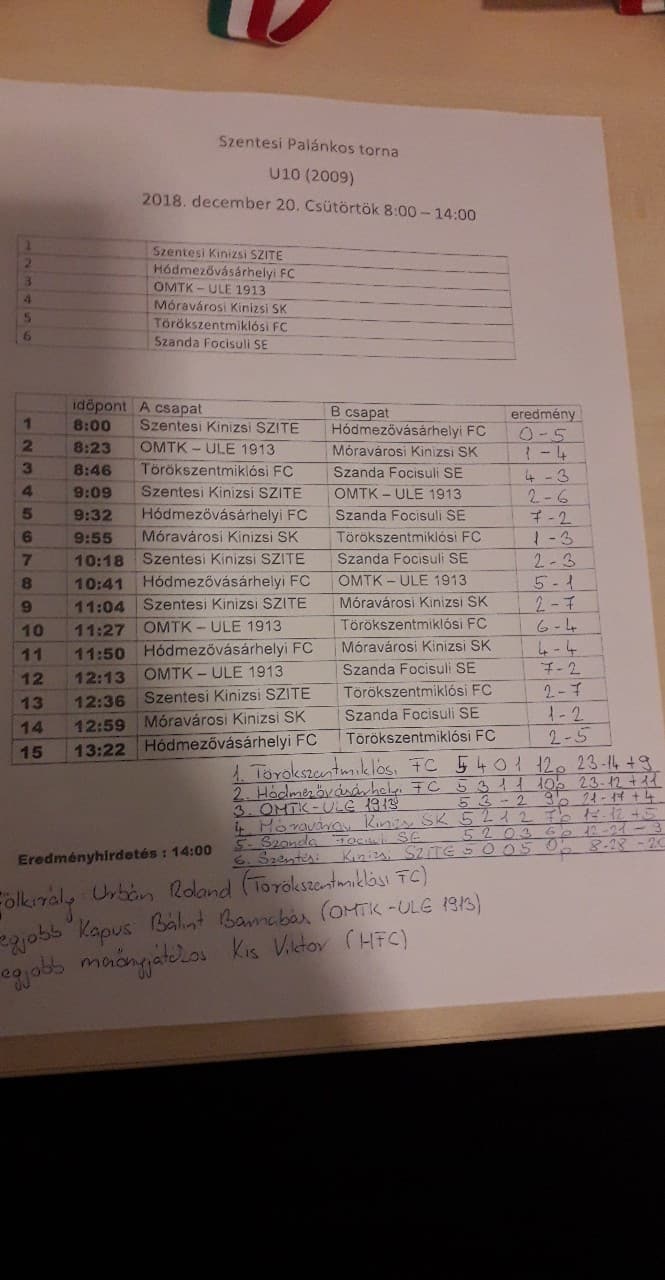 Szentesi Palánkos torna
U10 (2009)
2018. december 20. Csütörtök 8:00 – 14:00
1 Szentesi Kinizsi SZITE
2 Hódmezővásárhelyi FC
3 OMTK – ULE 1913
4 Móravárosi Kinizsi SK
5 Törökszentmiklósi FC
6 Szanda Focisuli SE
időpont A csapat B csapat eredmény
1 8:00 Szentesi Kinizsi SZITE Hódmezővásárhelyi FC 0-5
2 8:23 OMTK – ULE 1913 Móravárosi Kinizsi SK 1-4
3 8:46 Törökszentmiklósi FC Szanda Focisuli SE 4-3
4 9:09 Szentesi Kinizsi SZITE OMTK – ULE 1913 2-6
5 9:32 Hódmezővásárhelyi FC Szanda Focisuli SE 7-2
6 9:55 Móravárosi Kinizsi SK Törökszentmiklósi FC 1-3
7 10:18 Szentesi Kinizsi SZITE Szanda Focisuli SE 2-3
8 10:41 Hódmezővásárhelyi FC OMTK – ULE 1913 5-1
9 11:04 Szentesi Kinizsi SZITE Móravárosi Kinizsi SK 2-7
10 11:27 OMTK – ULE 1913 Törökszentmiklósi FC 6-4
11 11:50 Hódmezővásárhelyi FC Móravárosi Kinizsi SK 4-4
12 12:13 OMTK – ULE 1913 Szanda Focisuli SE 7-2
13 12:36 Szentesi Kinizsi SZITE Törökszentmiklósi FC 2-7
14 12:59 Móravárosi Kinizsi SK Szanda Focisuli SE 1-2
15 13:22 Hódmezővásárhelyi FC Törökszentmiklósi FC 2-5
1. Törökszentmiklósi FC 5 4 0 1 12p 23-14 +9
2. Hódmezővásárhelyi FC 5 3 1 1 10p 23-12 +11
3. OMTK-ULE 1913 5 3 - 2 9p 21-17 +4
4. Móravárosi Kinizsi SK 5 2 1 2 7p 17-12 +5
5. Szanda Focisuli SE 5 2 0 3 6p 12-21
6. Szentesi Kinizsi SZITE 5 0 0 5 0p 8-28 -20
Eredményhirdetés : 14:00
ólkirály Urbán Roland (Törökszentmiklósi FC)
egjobb Kapus Bálint Barnabás (OMTK-ULE 1913)
egjobb mezőnyjátékos Kis Viktor (HFC)